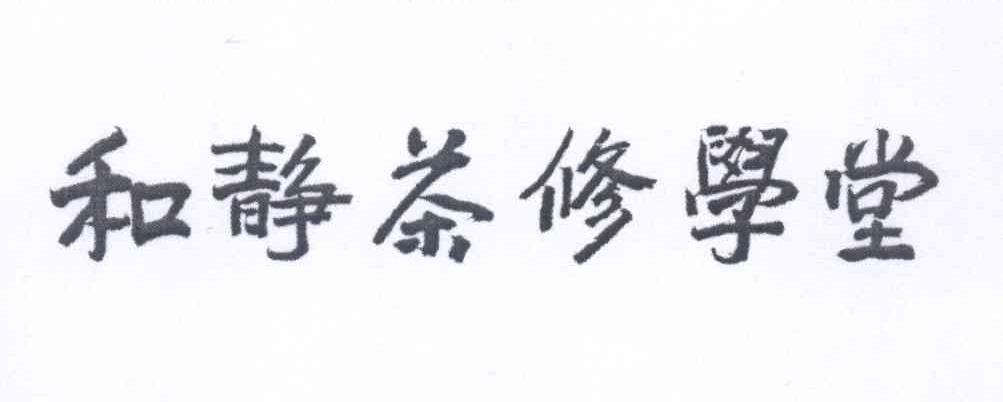 和静茶修學堂